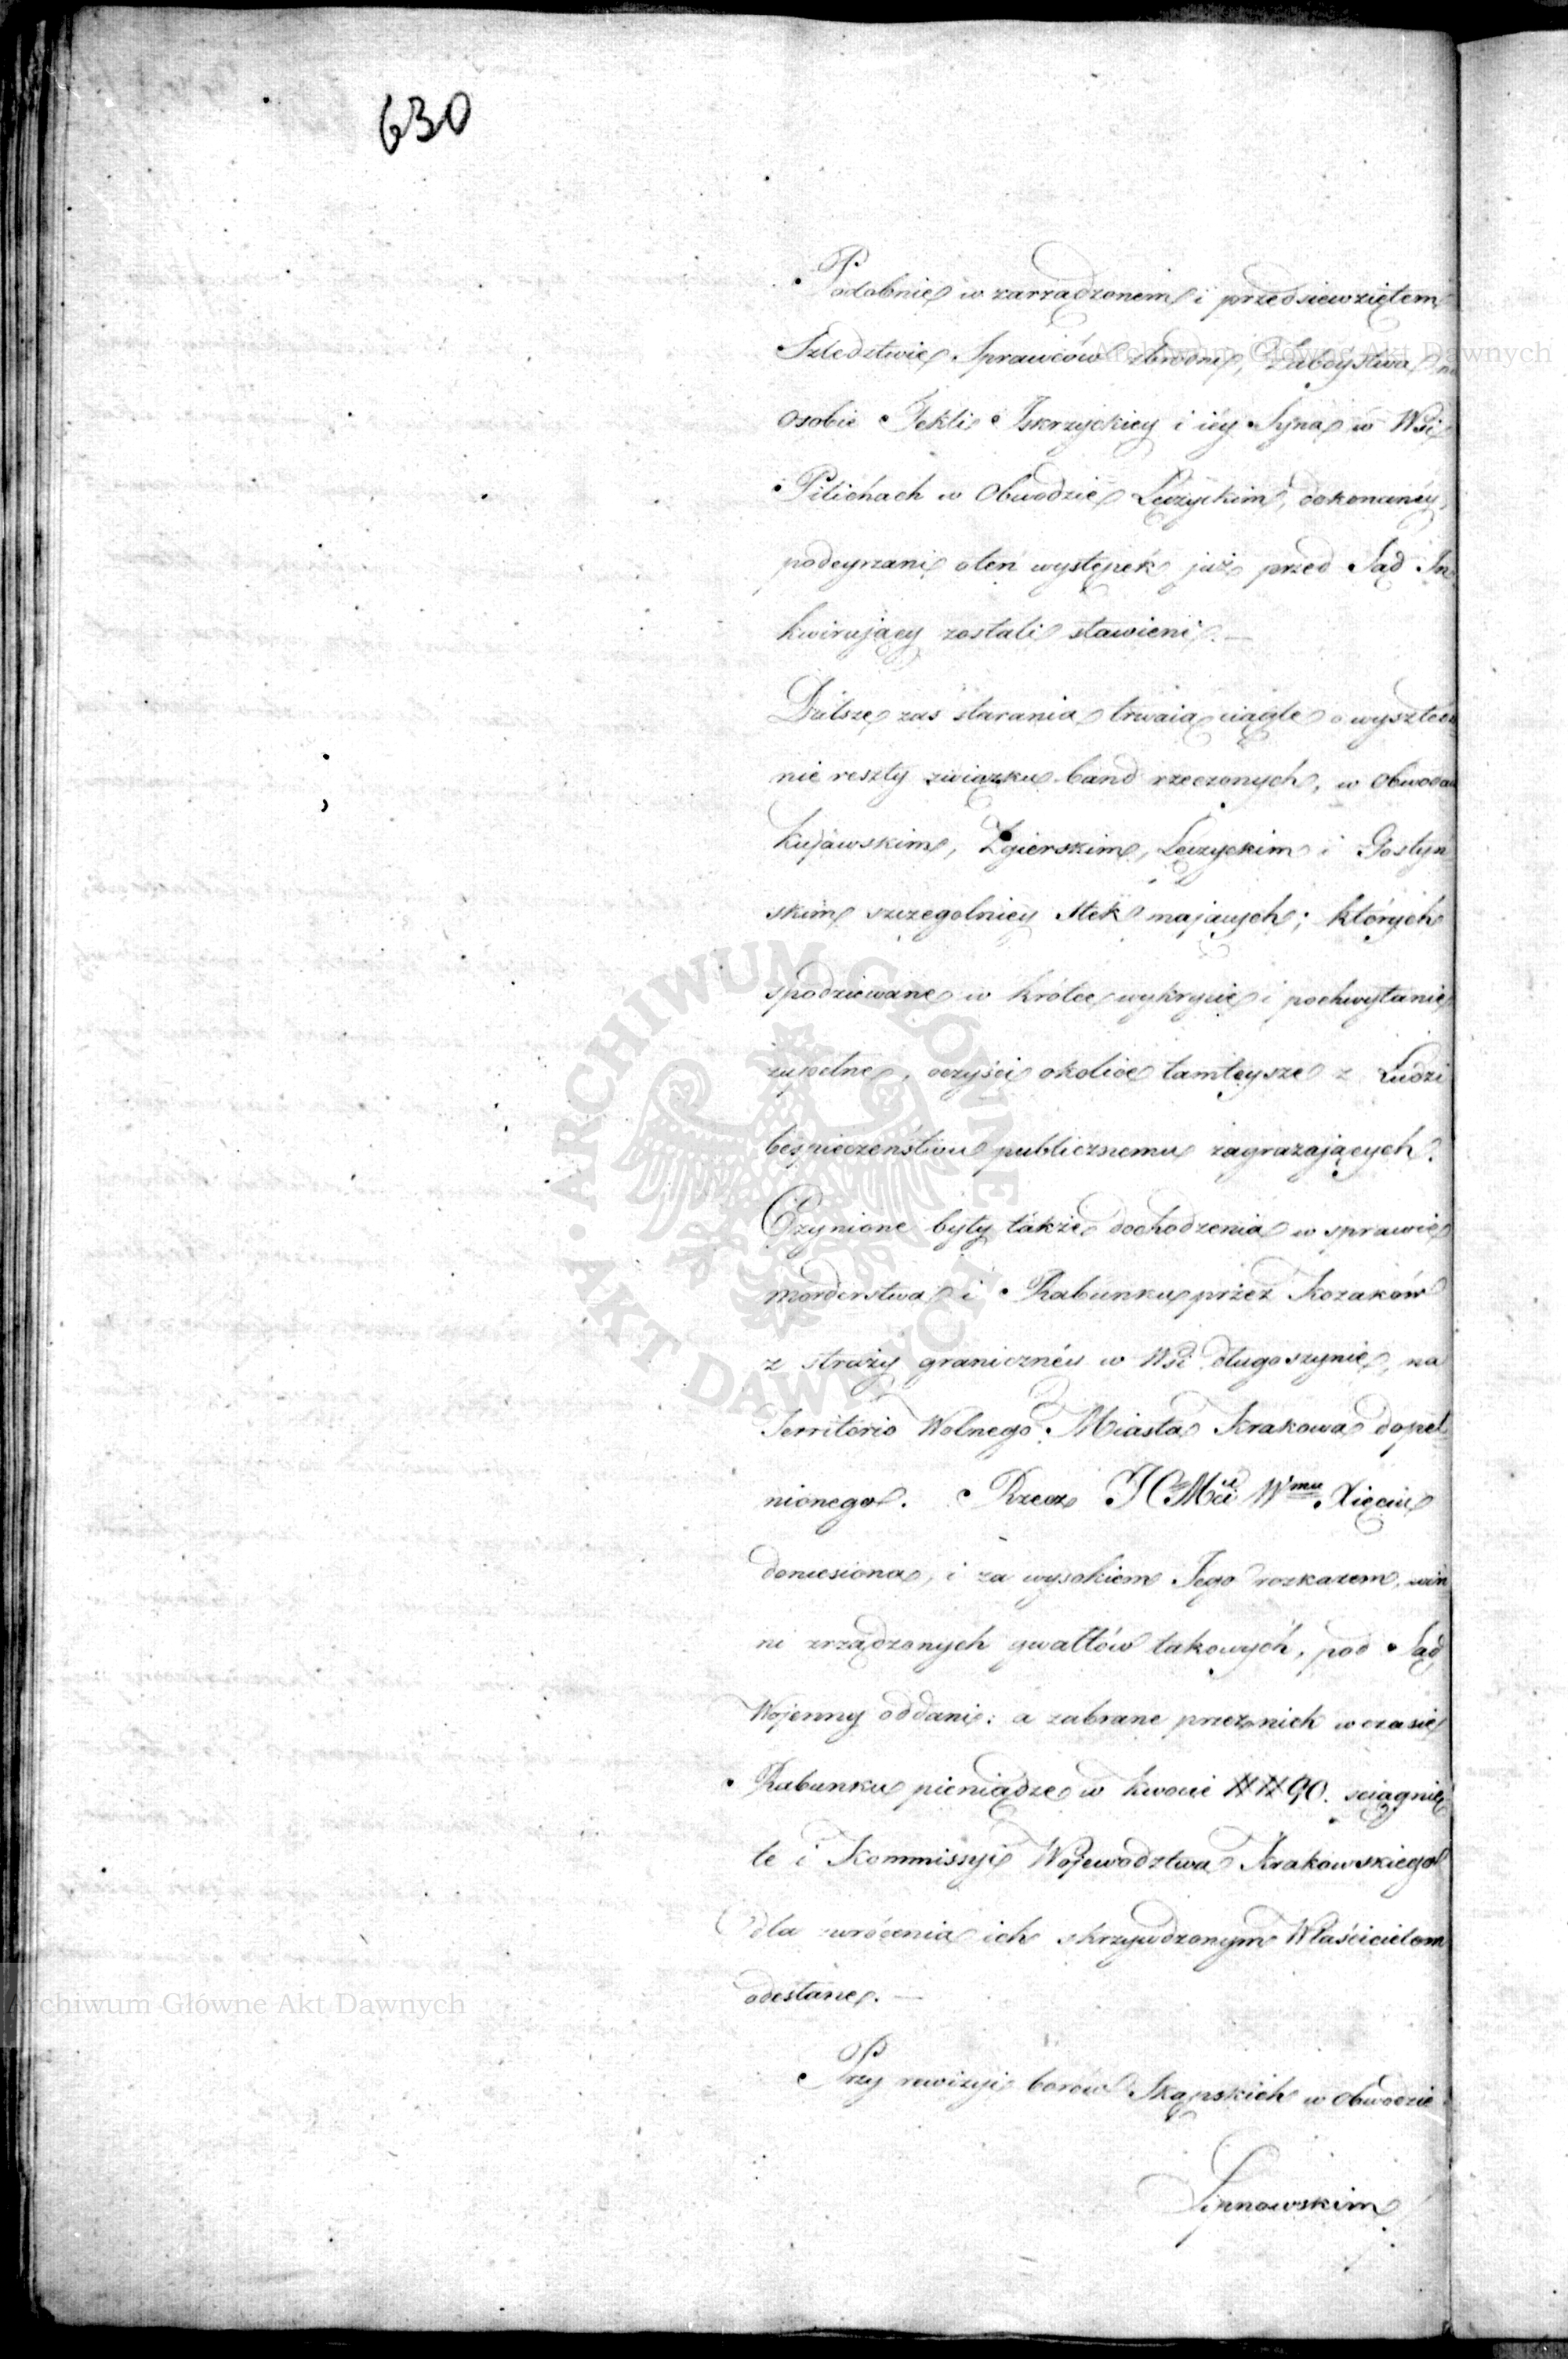 630
Podobnie w zarządzonem i przedsiewziętem
Szledztwie Sprawców zbrodni, Zaboystwa na
osobie Tekli Iskrzyckiey i iéy Syna w Wsi
Pilichach w Obwodzie Łęczyckim, dokonanéy,
podeyrzani oten występek już przed Sąd In
kwirujący zostali stawieni. —
Dalsze zas starania trwaią ciągle o wyszledze
nie reszty związku band rzeczonych, w Obwodach
Kujawskim, Zgierskim, Łęczyckim i Gostyn
skim szczegolniey stek mających; których
spodziewane w krótce wykrycie i pochwytanie
zupełne, oczyści okolice tamteysze z Ludzi
bespieczeństwu publicznemu zagrażających.
Czynione były także dochodzenia w sprawie
morderstwa i Rabunku przez Kozaków
z straży granicznéy w Wsi Długoszynie, na
Territorio Wolnego Miasta Krakowa dopeł
nionego. Rzecz JCMci Wmu Xięciu
doniesiona, i za wysokiem Jego rozkazem, win
ni zrządzonych gwałtów takowych, pod Sąd
Wojenny oddani: a zabrane przeznich w czasie
Rabunku pieniądze w kwocie ## 90. sciągnię
te i Kommissyi Wojewodztwa Krakowskiego
dla zwrócenia ich skrzywdzonym Właścicielom
odesłane. —
Przy rewizyi borów Skąpskich w Obwodzie
Lipnowskim
Archiwum Główne Akt Dawnych
ARCHIWUM GŁÓWNE AKT DAWNYCH
Archiwum Główne Akt Dawnych